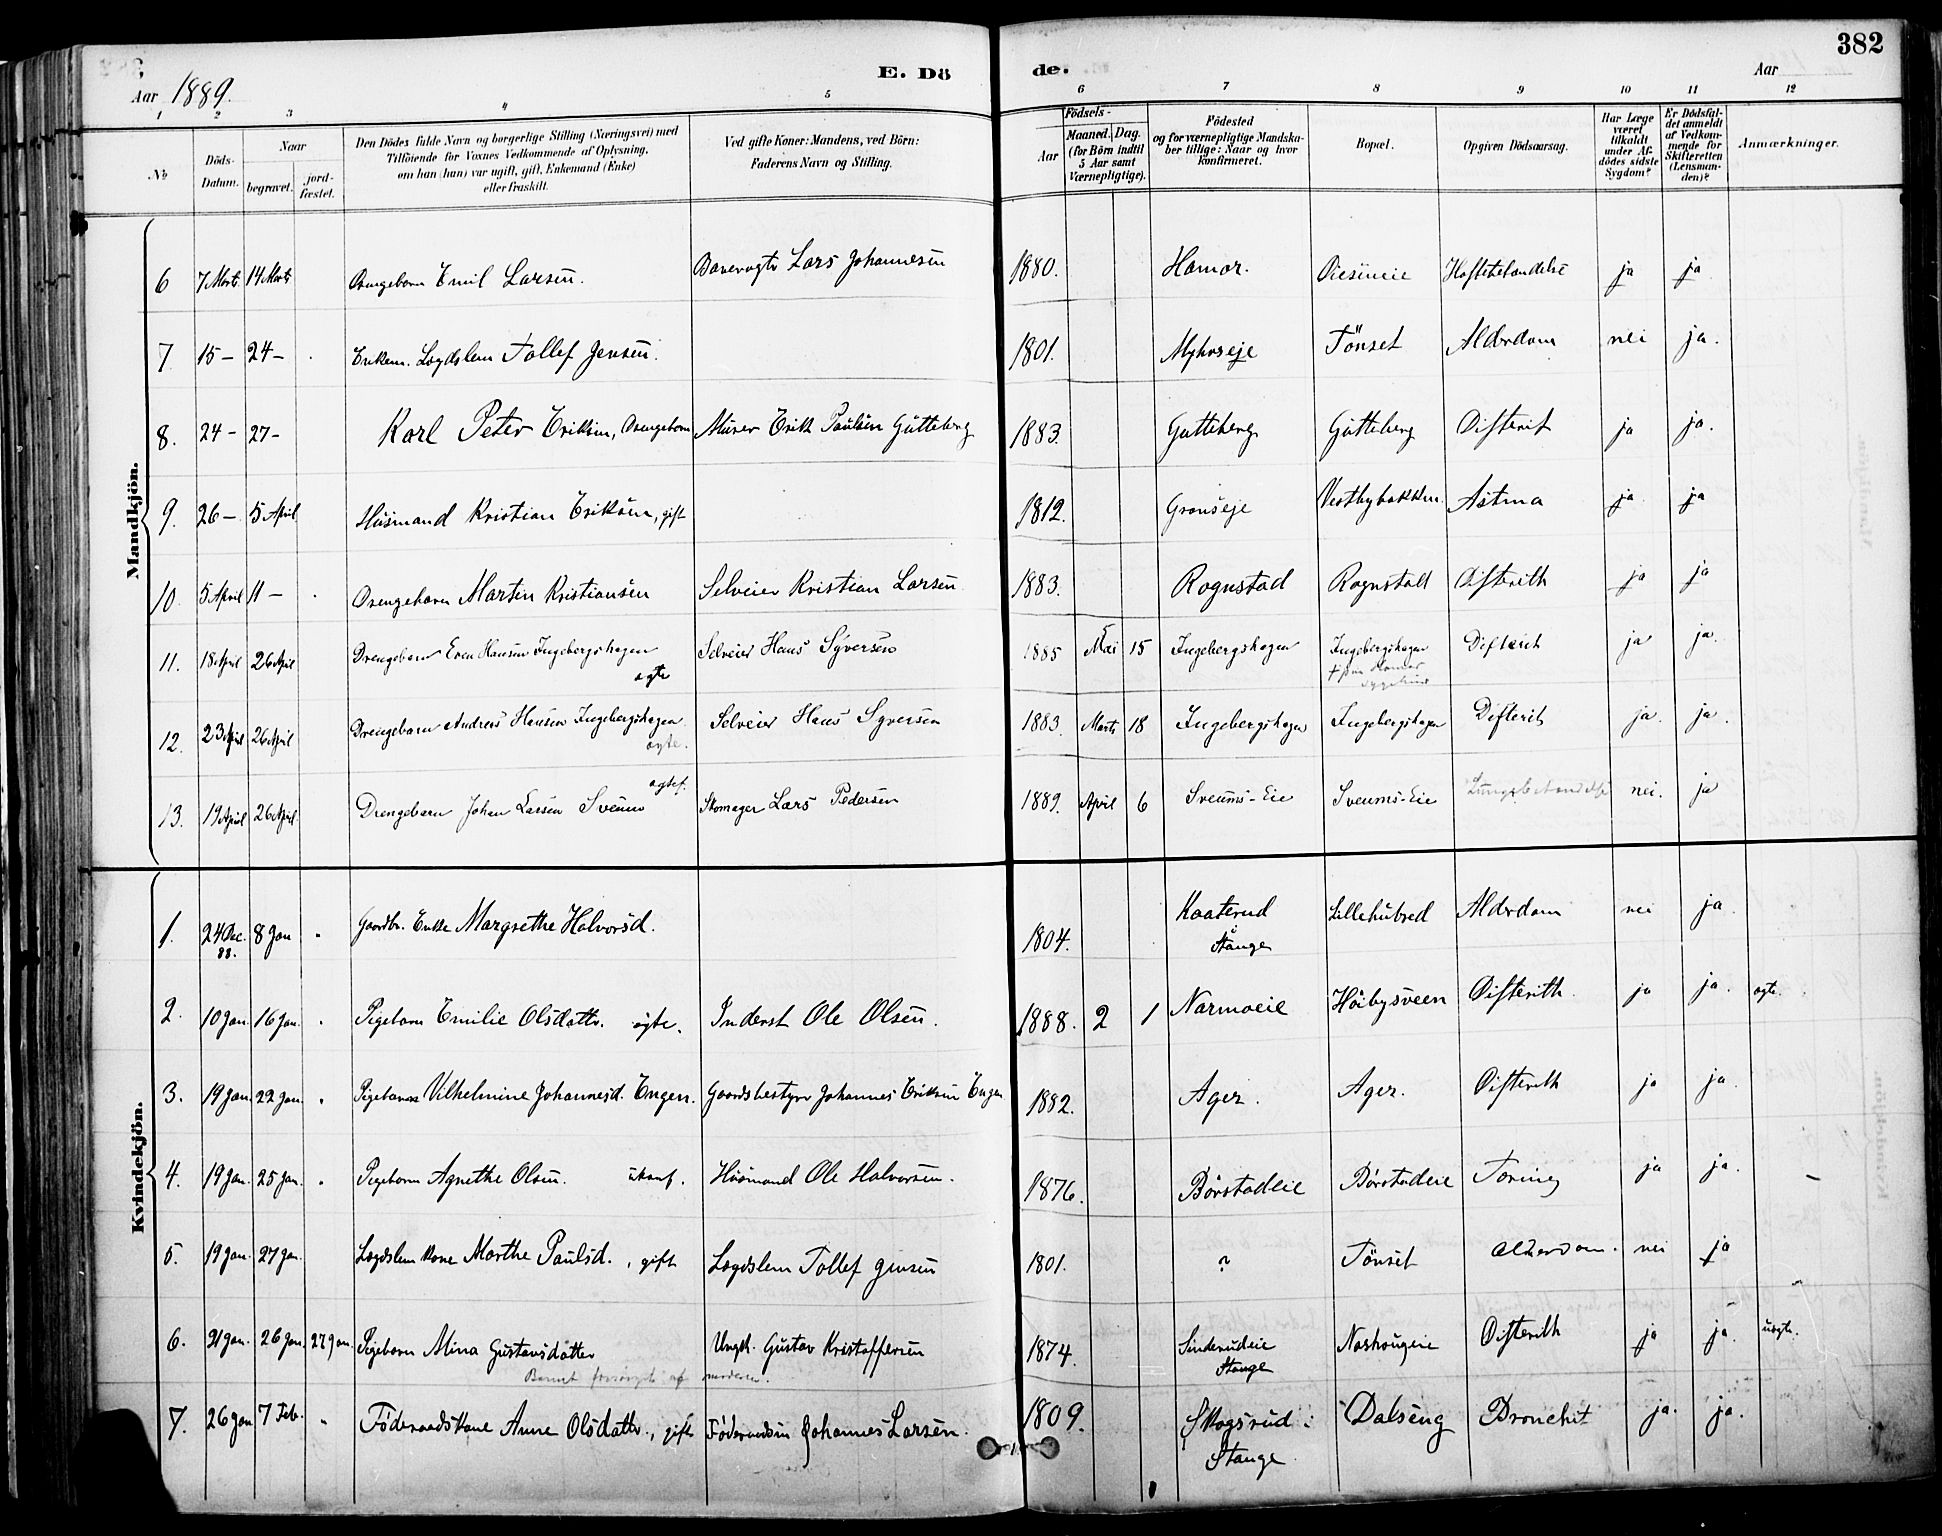 382
Aar 1889.
E. Döde.
Aar
1 2 3 4 5 6 7 8 9 10 11 12
No
Döds-Datum.
Naar
begravet.
jordfæstet.
Den Dödes fulde Navn og borgerlige Stilling (Næringsvei) med
Tilföiende for Voxnes Vedkommende af Oplysning,
om han (hun) var ugift, gift, Enkemand (Enke)
eller fraskilt.
Ved gifte Koner: Mandens, ved Börn:
Faderens Navn og Stilling.
Födsels-
Aar
Maaned. Dag.
(for Börn indtil
5 Aar samt
Værnepligtige).
Födested
og for værnepligtige Mandskaber tillige: Naar og hvor
konfirmeret.
Bopæl.
Opgiven Dödsaarsag.
Har Læge
været
tilkaldt
under Afdödes sidste
Sygdom?
Er Dödsfaldet anmeldt
af Vedkommende for
Skifteretten
(Lensmanden)?
Anmærkninger.
Mandkjön.
6 7 Marts 14 Marts Drengebarn Emil Larsen. Banevogter Lars Johannesen 1880. Hamar. ja ja
7 15 – 24 – Enkem. Lægdslem Tollef Jensen. 1801. Tönset Alderdom nei ja.
8. 24 – 27 – Karl Peter Eriksen, Drengebarn Murer Erik Paulsen Gutteberg 1883. Gutteberg Gutteberg Difterit ja ja.
9. 26 – 5 April Husmand Kristian Eriksen, gift 1812. Vestbybakken Astma ja ja
10. 5 April 11 – Drengebarn Martin Kristiansen Selveier Kristian Larsen 1883. Rognstad Rognstad Difterith ja ja
11. 18 April 26 April Drengebarn Even Hansen Ingebergshagen ægte Selveier Hans Syversen 1885 Mai 15 Ingebergshagen Ingebergshagen Difterit ja ja.
12. 23 April 26 April Drengebarn Andreas Hansen Ingebergshagen ægte. Selveier Hans Syversen 1883. Marts 18 Ingebergshagen Ingebergshagen Difterit ja. ja.
13. 19 April 26 April Drengebarn Johan Larsen Sveum ægtef. Skomager Lars Pedersen 1889. April 6 Sveums-Eie Sveums-Eie Lungebetændelse nei. ja
Kvindekjön.
1. 24 Dec. 88. 8 Jan Gaardbr. Enke Margrethe Halvorsd. 1804. Kaaterud i Stange Lillehubred Alderdom nei ja.
2. 10 Jan. 16 Jan. Pigebarn Emilie Olsdatter. ægte. Inderst Ole Olsen. 1888. 2 1 Narmoeie Höibysveen Difterith. ja ja. ægte.
3. 19 Jan. 22 Jan. Pigebarn Vilhelmine Johannesd. Engen. Gaardsbestyrer Johannes Eriksen Engen 1882. Ager. Ager. Difterith ja ja.
4. 19 Jan. 25 Jan. Pigebarn Agnethe Olsen. ukonf. Husmand Ole Halvorsen. 1876. Börstadeie Börstadeie Tæring ja ja.
5. 19 Jan. 27 Jan. Lægdslem Kone Marthe Paulsd., gift Lægdslem Tollef Jensen 1801. ? Tönset Alderdom. nei ja
6. 21 Jan. 26 Jan. 27 Jan. Pigebarn Mina Gustavsdatter Ungk. Gustav Kristoffersen 1874. Sinderudeie Stange Naskougeie Difterith ja ja. uægte.
Barnet forsørget af moderen.
7. 26 Jan 7 Feb. Föderaadskone Anne Olsdatter, gift Föderaadsm Johannes Larsen. 1809. Skogsrud i Stange Dalseng Bronchit ja. ja.